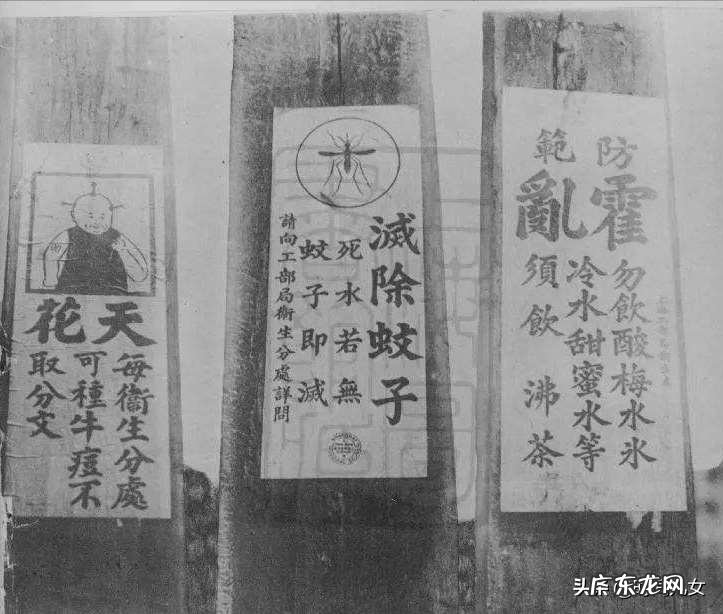 防範
霍亂
勿飲酸梅水氷
冷水甜蜜水等
須飲沸茶
滅除蚊子
死水若無
蚊子即滅
請向工部局衛生分處詳問
天花
每衞生分處
可種牛痘不
取分文
头条 东龙网 女